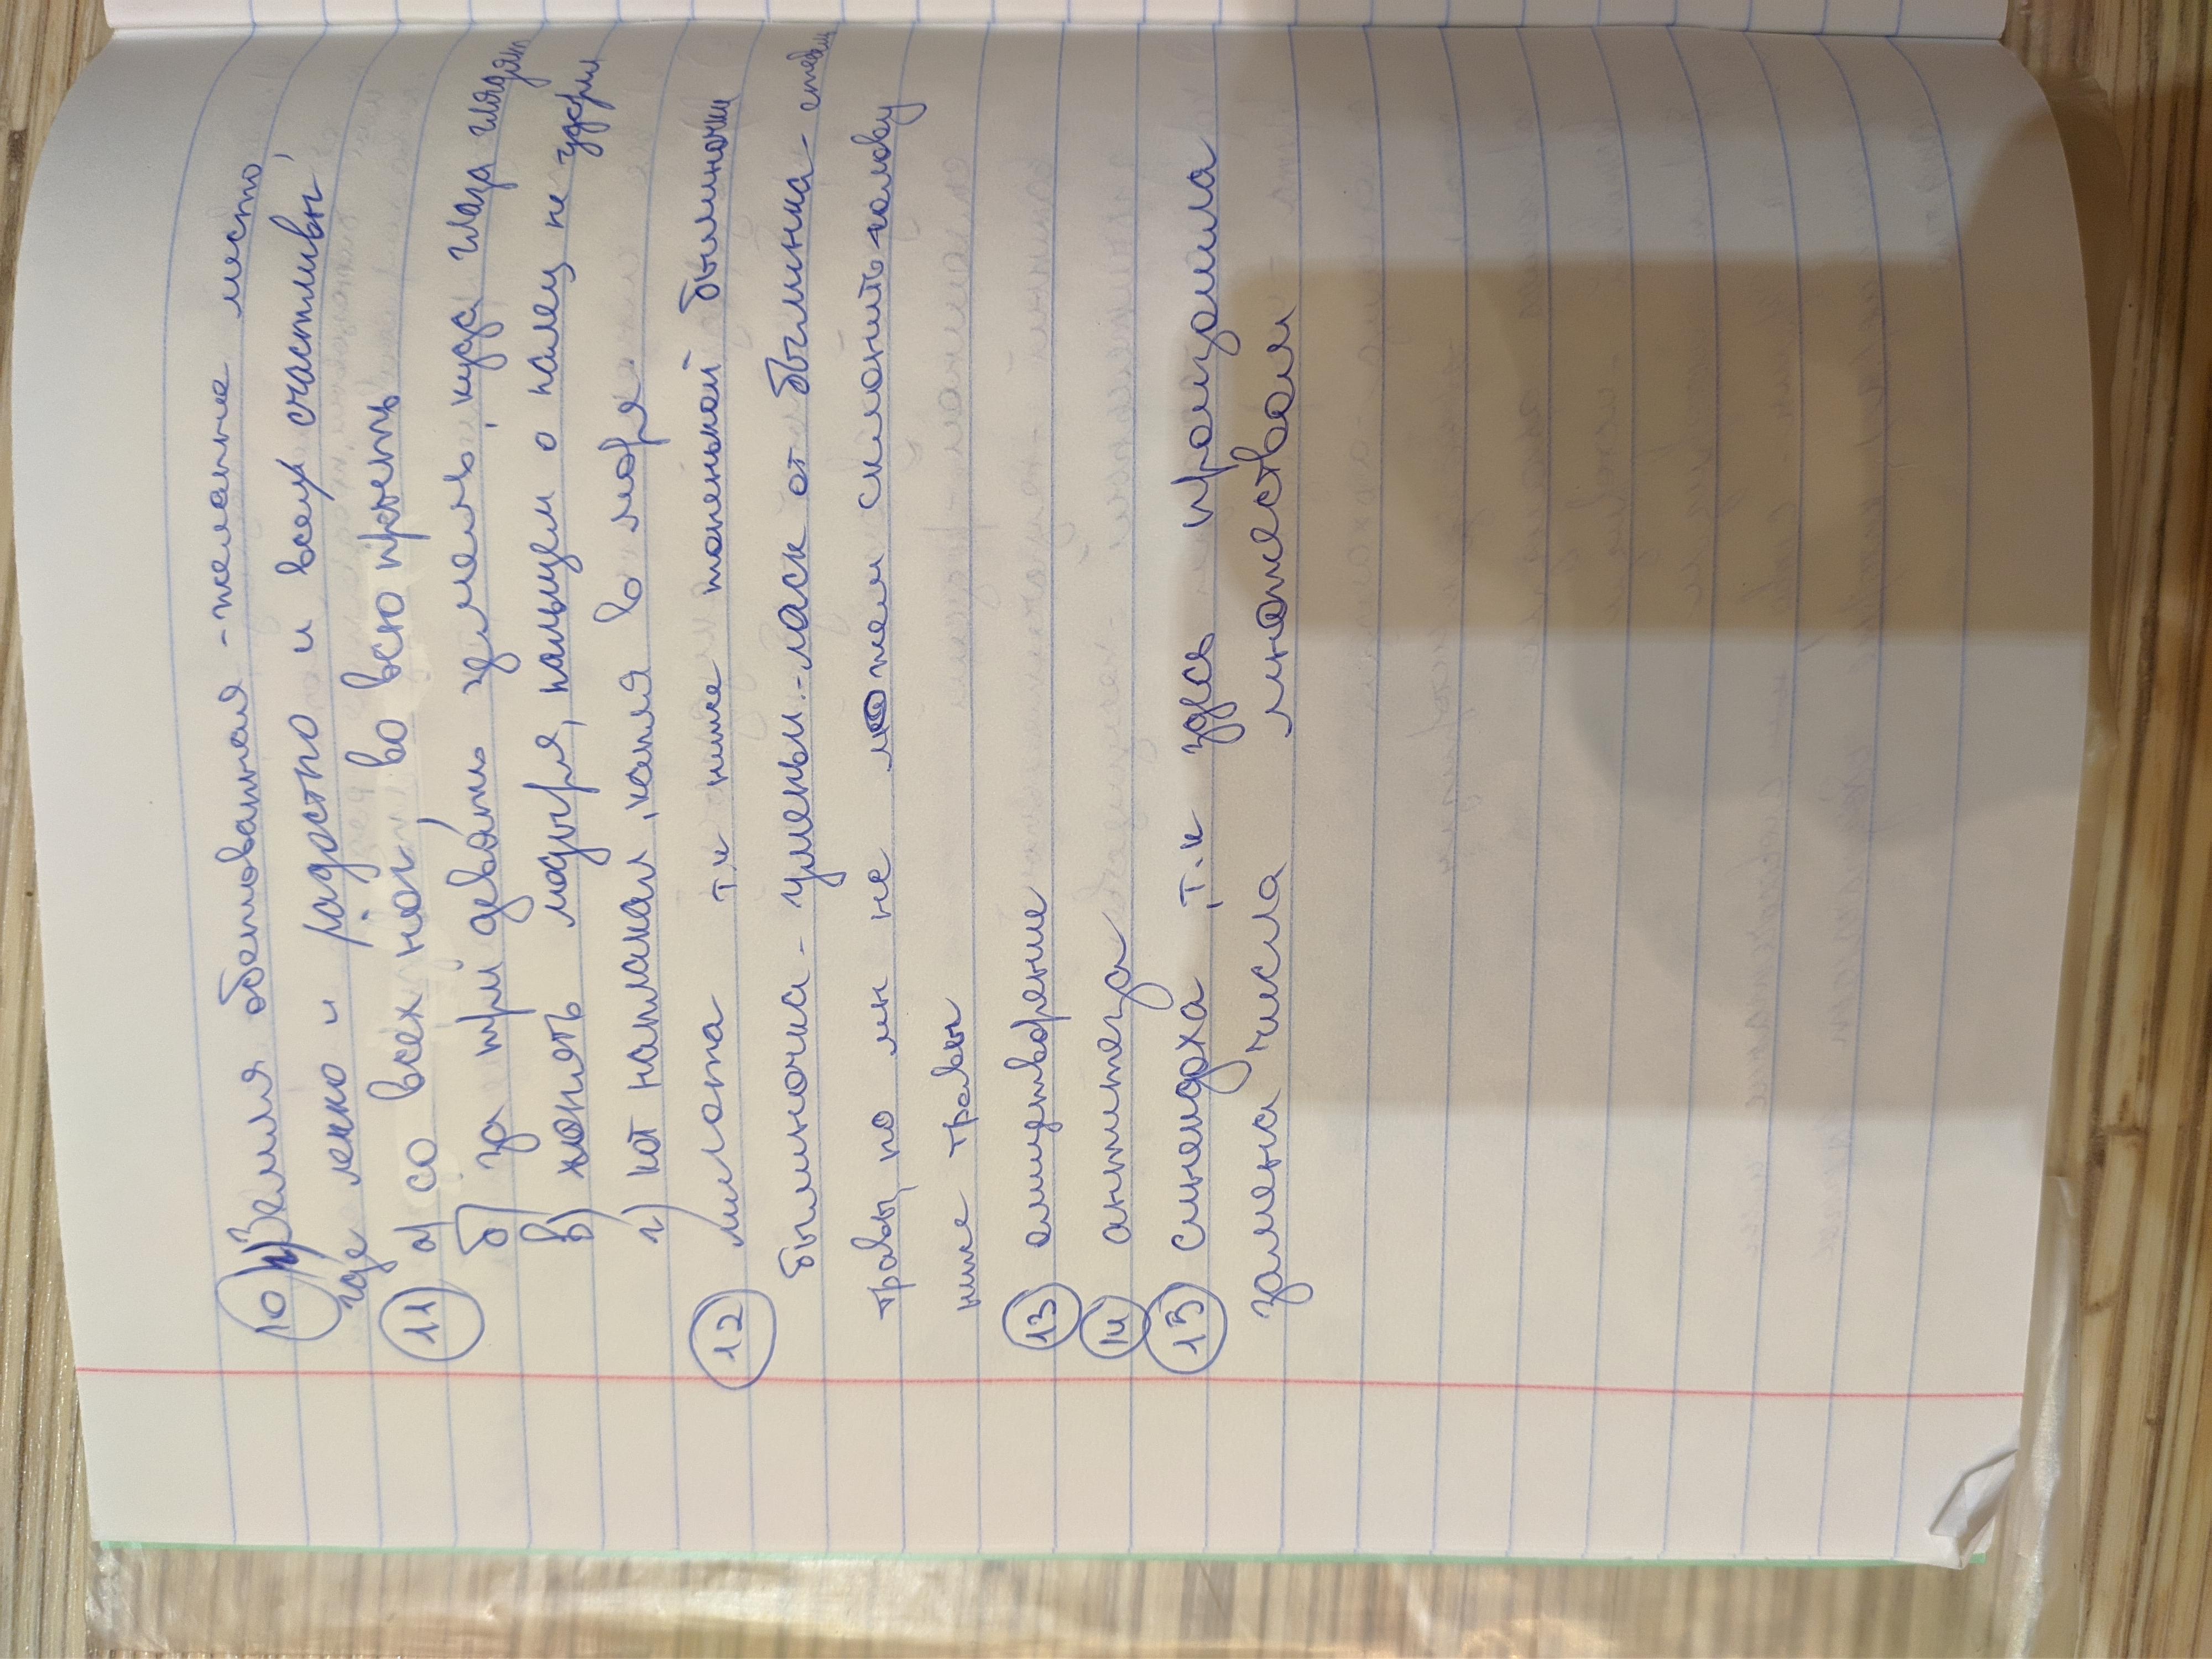 10 Земля обетованная - желанне место,
где легко и радостно и всех счастливы
11 а) со всех ног, во всю прыть
б) за три девять земель, куда глаза глядят
в) хонять лодыря, пальцем о палец не удрил
г) кот наплакал, капля в море.
12 литота т.к ниже тоненькой былиночки
былиночка - уменьш.-ласк от былинка - стебель
травы, но мн не можем склонить голову
ниже травы
13 олицетворение
14 антитеза
15 синекдоха, т.к здесь произошла
замена числа множеством